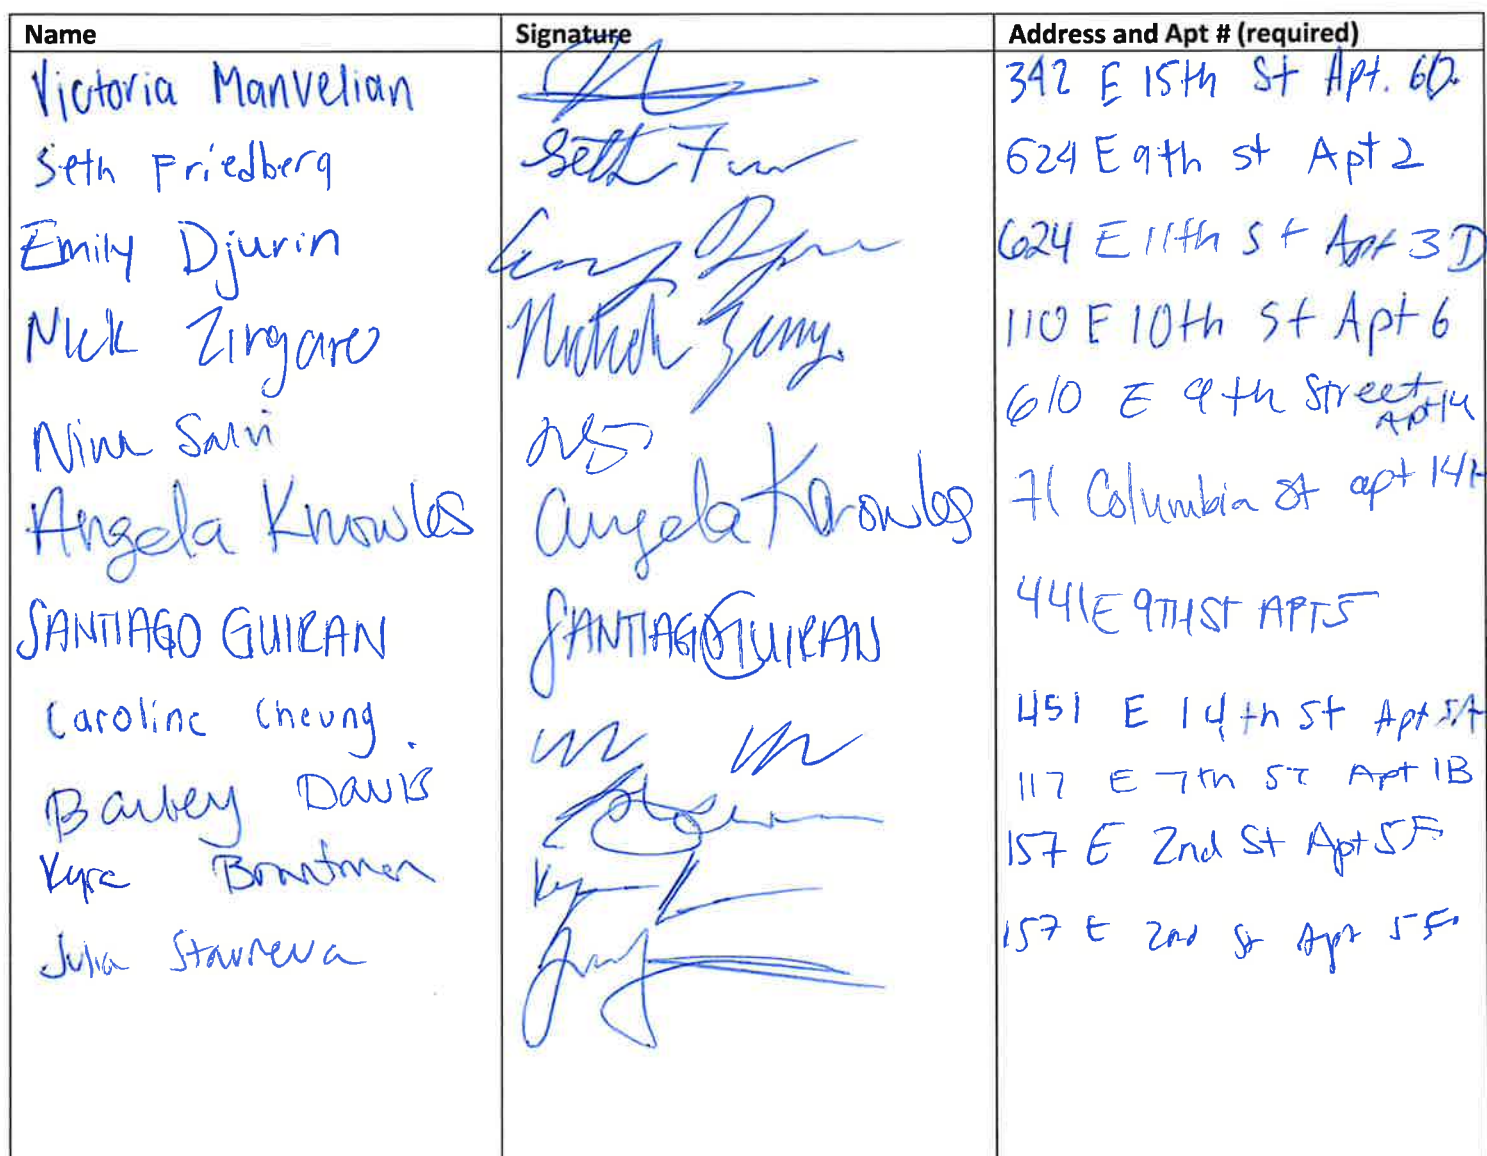 Name Signature Address and Apt # (required)
Victoria Manvelian 342 E 15th St Apt. 6D
Seth Friedberg Seth F 624 E 9th st Apt 2
Emily Djurin 624 E 11th St Apt 3D
Nick Zingaro 110 E 10th St Apt 6
Nina Salvi NS 610 E 9th Street Apt 14
Angela Knowles Angela Knowles 71 Columbia St apt 14H
SANTIAGO GUIRAN SANTIAGO GUIRAN 441 E 9TH ST APT 5
Caroline Cheung 451 E 14th St Apt 5A
Barbey Davis 117 E 7th ST Apt 1B
Kyra 157 E 2nd St Apt 5F
Julia Stavreva 157 E 2nd St Apt 5F